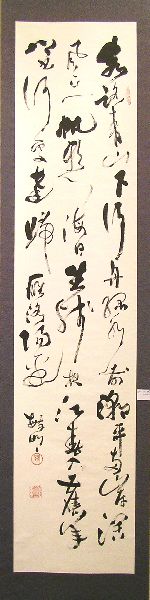 客路青山下行舟綠水前潮平兩岸闊
風正一帆懸海日生殘夜江春入舊年
鄉書何處達歸雁洛陽邊